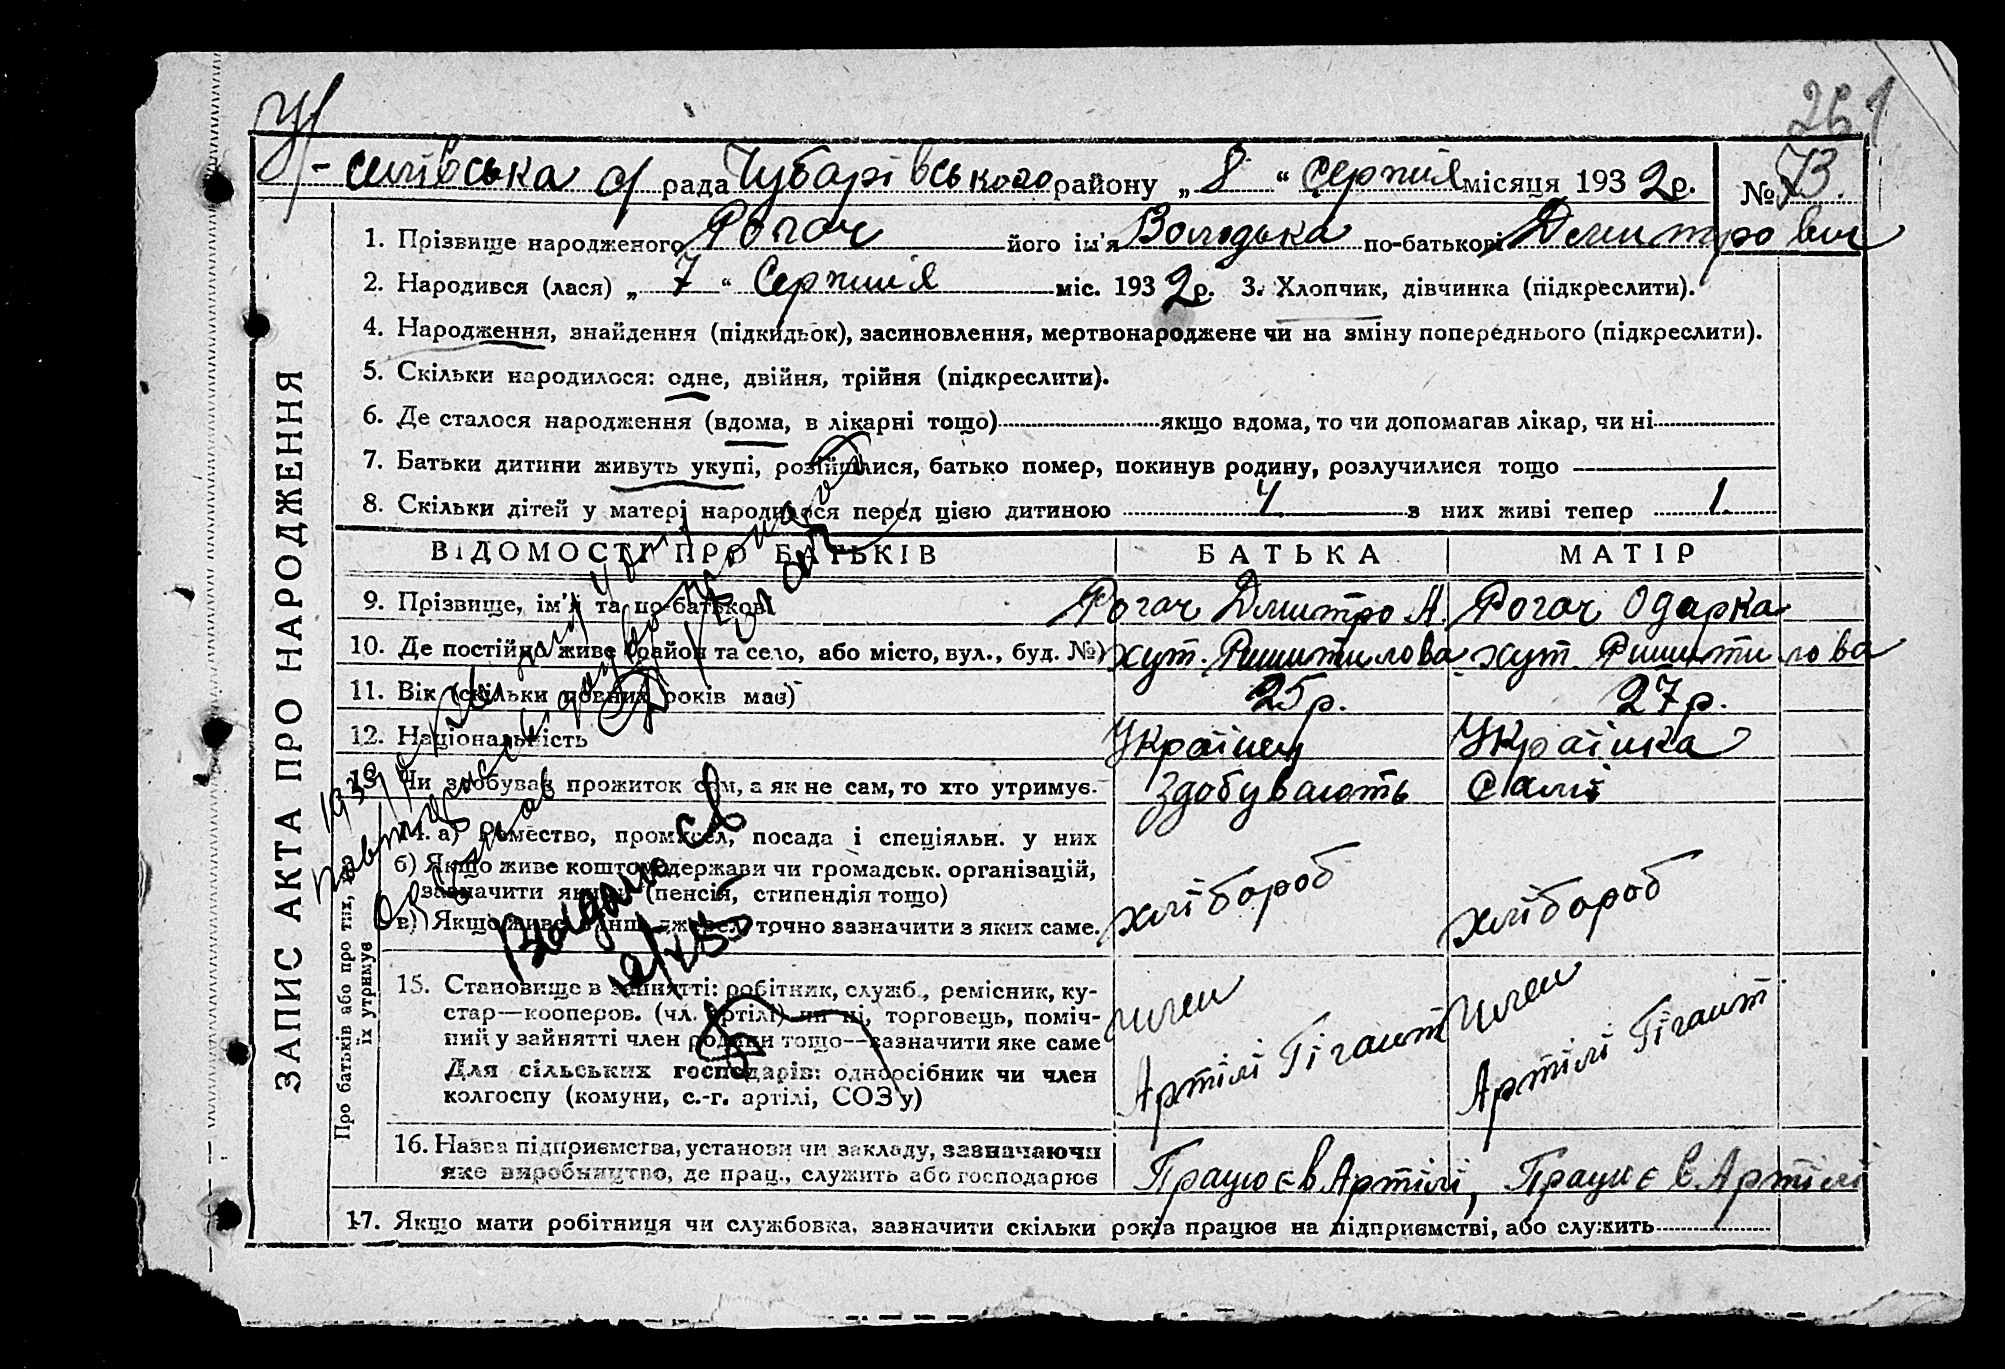 261
У-силівська с/ рада Чубарівського району „ 8 “ серпня місяця 1932 р. № 73.
1. Прізвище народженого Рогач його ім'я Володька по-батькові Дмитрович
2. Народився (лася) „ 7 “ Серпня міс. 1932 р. 3. Хлопчик, дівчинка (підкреслити).
4. Народження, знайдення (підкидьок), засиновлення, мертвонароджене чи на зміну попереднього (підкреслити).
5. Скільки народилося: одне, двійня, трійня (підкреслити).
6. Де сталося народження (вдома, в лікарні тощо) якщо вдома, то чи допомагав лікар, чи ні
7. Батьки дитини живуть укупі, розійшлися, батько помер, покинув родину, розлучилися тощо
8. Скільки дітей у матері народилося перед цією дитиною 4 з них живі тепер 1.
ЗАПИС АКТА ПРО НАРОДЖЕННЯ
ВІДОМОСТІ ПРО БАТЬКІВ БАТЬКА МАТІР
9. Прізвище, ім'я та по-батькові Рогач Дмитро А. Рогач Одарка
10. Де постійно живе (район та село, або місто, вул., буд. №) хут. Ришитилова хут Ришитилова
11. Вік (скільки повних років має) 25 р. 27 р.
12. Національність Українец Українка
13. Чи здобував прожиток сам, а як не сам, то хто утримує. Здобувають самі
Про батьків або про тих, хто їх утримує
14. а) Ремество, промисел, посада і спеціяльн. у них
б) Якщо живе коштом держави чи громадськ. організацій,
зазначити яких (пенсія, стипендія тощо)
в) Якщо живе з інш. джерел, точно зазначити з яких саме.
хлібороб хлібороб
15. Становище в зайнятті: робітник, служб., ремісник, ку-
стар—кооперов. (чл. артілі) чи ні, торговець, поміч-
ний у зайнятті член родини тощо—зазначити яке саме
Для сільських господарів: одноосібник чи член
колгоспу (комуни, с.-г. артілі, СОЗ'у)
член Артілі Гігант член Артілі Гігант
16. Назва підприємства, установи чи закладу, зазначаючи
яке виробництво, де прац., служить або господарює
Працює в Артілі, Працює в Артілі
17. Якщо мати робітниця чи службовка, зазначити скільки років працює на підприємстві, або служить
Выдано св